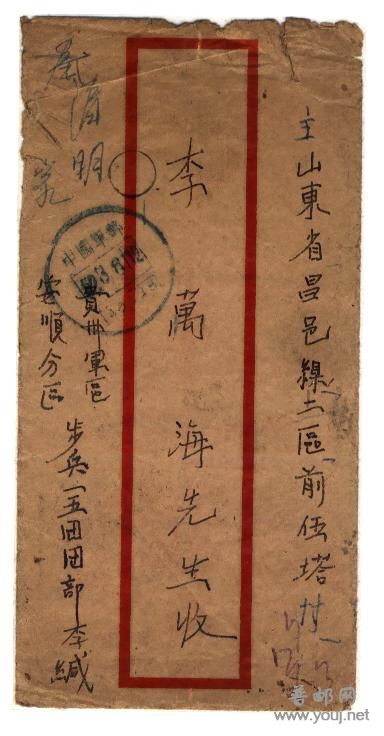 主山東省昌邑縣二區前伍塔村
李萬海先生收
貴州軍區
安順分區
步兵一五团团部李緘
中國軍郵
普邮网
www.youj.net